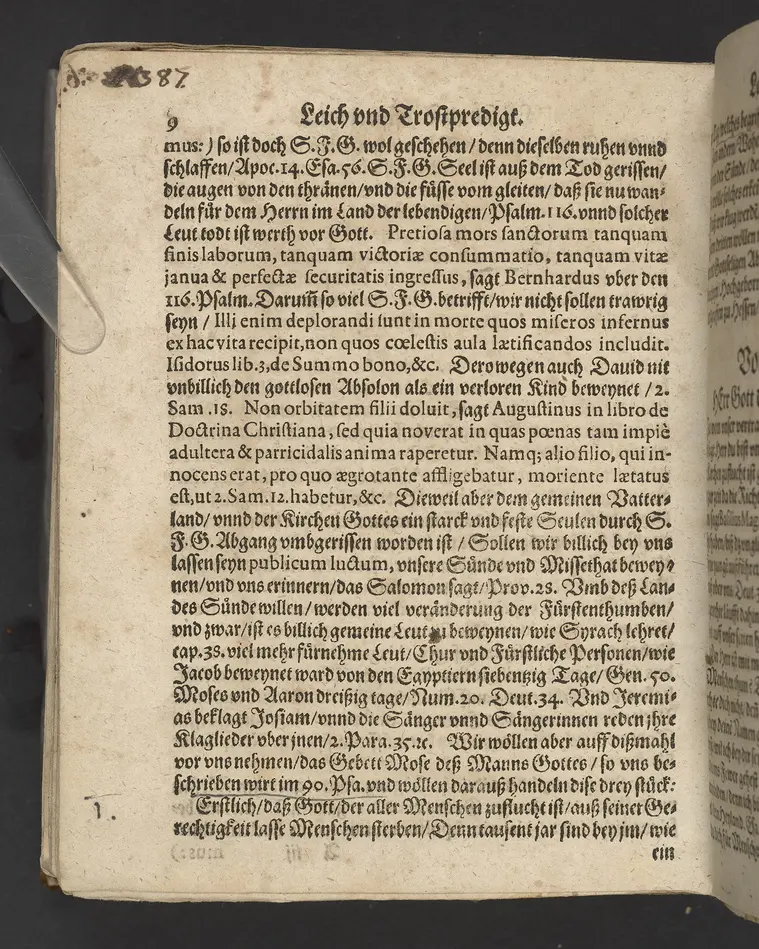 387.
9 Leich vnd Trostpredigt.
mus:) so ist doch S. F. G. wol geschehen / denn dieselben ruhen vnnd
schlaffen/Apoc. 14. Esa. 56. S. F. G. Seel ist auß dem Tod gerissen/
die augen von den thränen/vnd die füsse vom gleiten/ daß sie nu wan-
deln für dem Herrn im Land der lebendigen/Psalm. 116. vnnd solcher
Leut todt ist werth vor Gott. Pretiosa mors sanctorum tanquam
finis laborum, tanquam victoriæ consummatio, tanquam vitæ
janua & perfectæ securitatis ingressus, sagt Bernhardus vber den
116. Psalm. Darum̃ so viel S. F. G. betrifft/wir nicht sollen trawrig
seyn / Illi enim deplorandi sunt in morte quos miseros infernus
ex hac vita recipit, non quos cœlestis aula lætificandos includit.
Isidorus lib. 3, de Summo bono, &c. Derowegen auch Dauid nit
vnbillich den gottlosen Absolon als ein verloren Kind beweynet / 2.
Sam. 18. Non orbitatem filii doluit, sagt Augustinus in libro de
Doctrina Christiana, sed quia noverat in quas pœnas tam impiè
adultera & parricidalis anima raperetur. Namq; alio filio, qui in-
nocens erat, pro quo ægrotante affligebatur, moriente lætatus
est, ut 2. Sam. 12. habetur, &c. Dieweil aber dem gemeinen Vatter-
land/ vnnd der Kirchen Gottes ein starck vnd feste Seulen durch S.
F. G. Abgang vmbgerissen worden ist / Sollen wir billich bey vns
lassen seyn publicum luctum, vnsere Sünde vnd Missethat bewey-
nen/vnd vns erinnern/das Salomon sagt/Prov. 28. Vmb deß Lan-
des Sünde willen/ werden viel veränderung der Fürstenthumben/
vnd zwar/ist es billich gemeine Leut zu beweynen/ wie Syrach lehret/
cap. 38. viel mehr fürnehme Leut/ Chur vnd Fürstliche Personen/wie
Jacob beweynet ward von den Egyptiern siebentzig Tage/ Gen. 50.
Moses vnd Aaron dreißig tage/Num. 20. Deut. 34. Vnd Jeremi-
as beklagt Josiam/vnnd die Sänger vnnd Sängerinnen reden jhre
Klaglieder vber jnen/2. Para. 35. ꝛc. Wir wöllen aber auff dißmahl
vor vns nehmen/das Gebett Mose deß Manns Gottes / so vns be-
schrieben wirt im 90. Psa. vnd wöllen darauß handeln dise drey stück:
1. Erstlich/daß Gott/der aller Menschen zuflucht ist/auß seiner Ge-
rechtigkeit lasse Menschen sterben/Denn tausent jar sind bey jm/ wie
ein